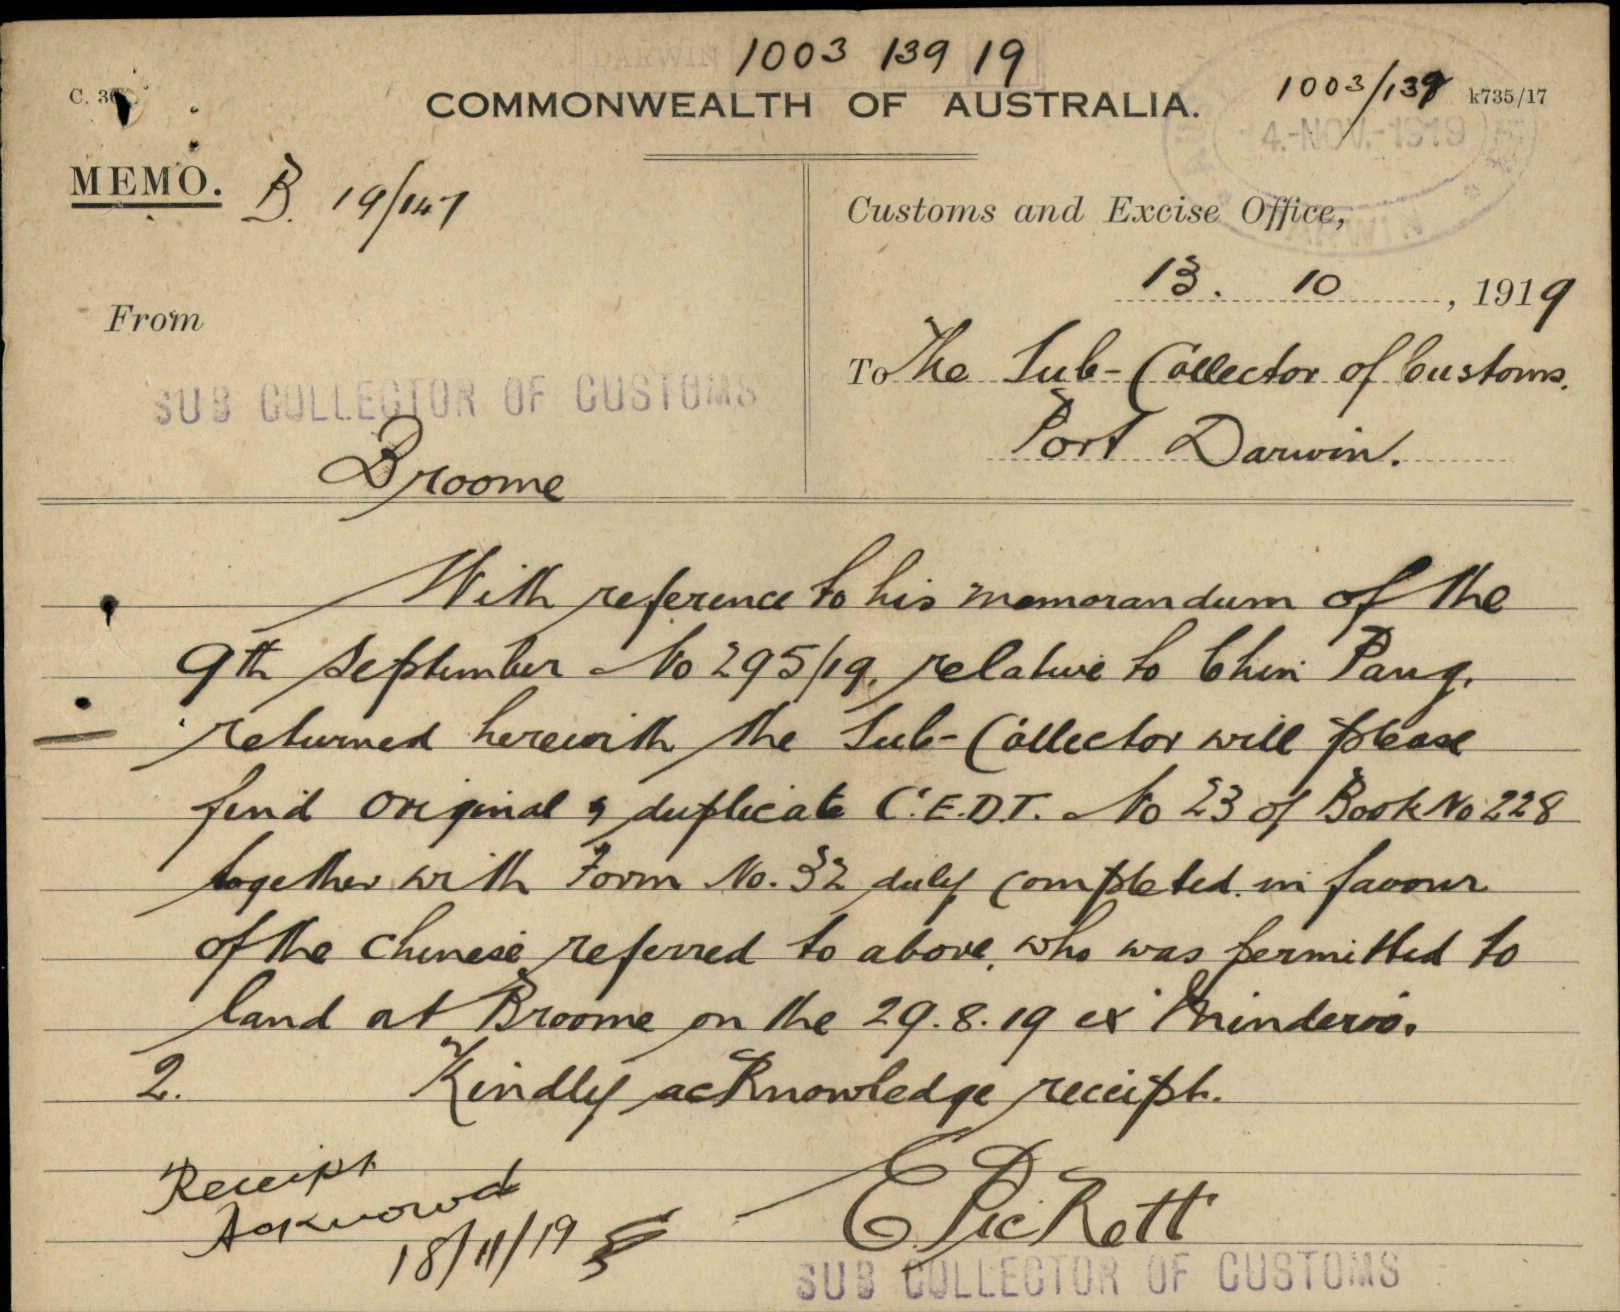 DARWIN
1003 139 19
C. 30
COMMONWEALTH OF AUSTRALIA.
1003/139
k735/17
4.-NOV.-1919
DARWIN
MEMO.
B. 19/147
Customs and Excise Office,
13. 10, 1919
From
To The Sub-Collector of Customs.
SUB COLLECTOR OF CUSTOMS
Port Darwin.
Broome
With reference to his memorandum of the
9th September No 295/19, relative to Chin Pang,
returned herewith the Sub-Collector will please
find original & duplicate C.E.D.T. No 23 of Book No 228
together with Form No. 32 duly completed in favour
of the Chinese referred to above, who was permitted to
land at Broome on the 29.8.19 ex Minderoo.
2. Kindly acknowledge receipt.
Receipt
Acknowd
18/11/19
E Pickett
SUB COLLECTOR OF CUSTOMS